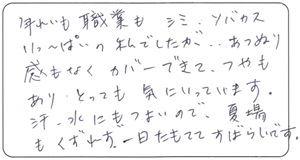 汗れいも 職業も シミ、ソバカス
いっ〜ぱいの私でしたが、、あつぬり
感もなく カバーできて、つやも
あり、とっても 気にいっています。
汗、水にもつよいので、夏場
もくずれず、一日たもてて すばらしいです。